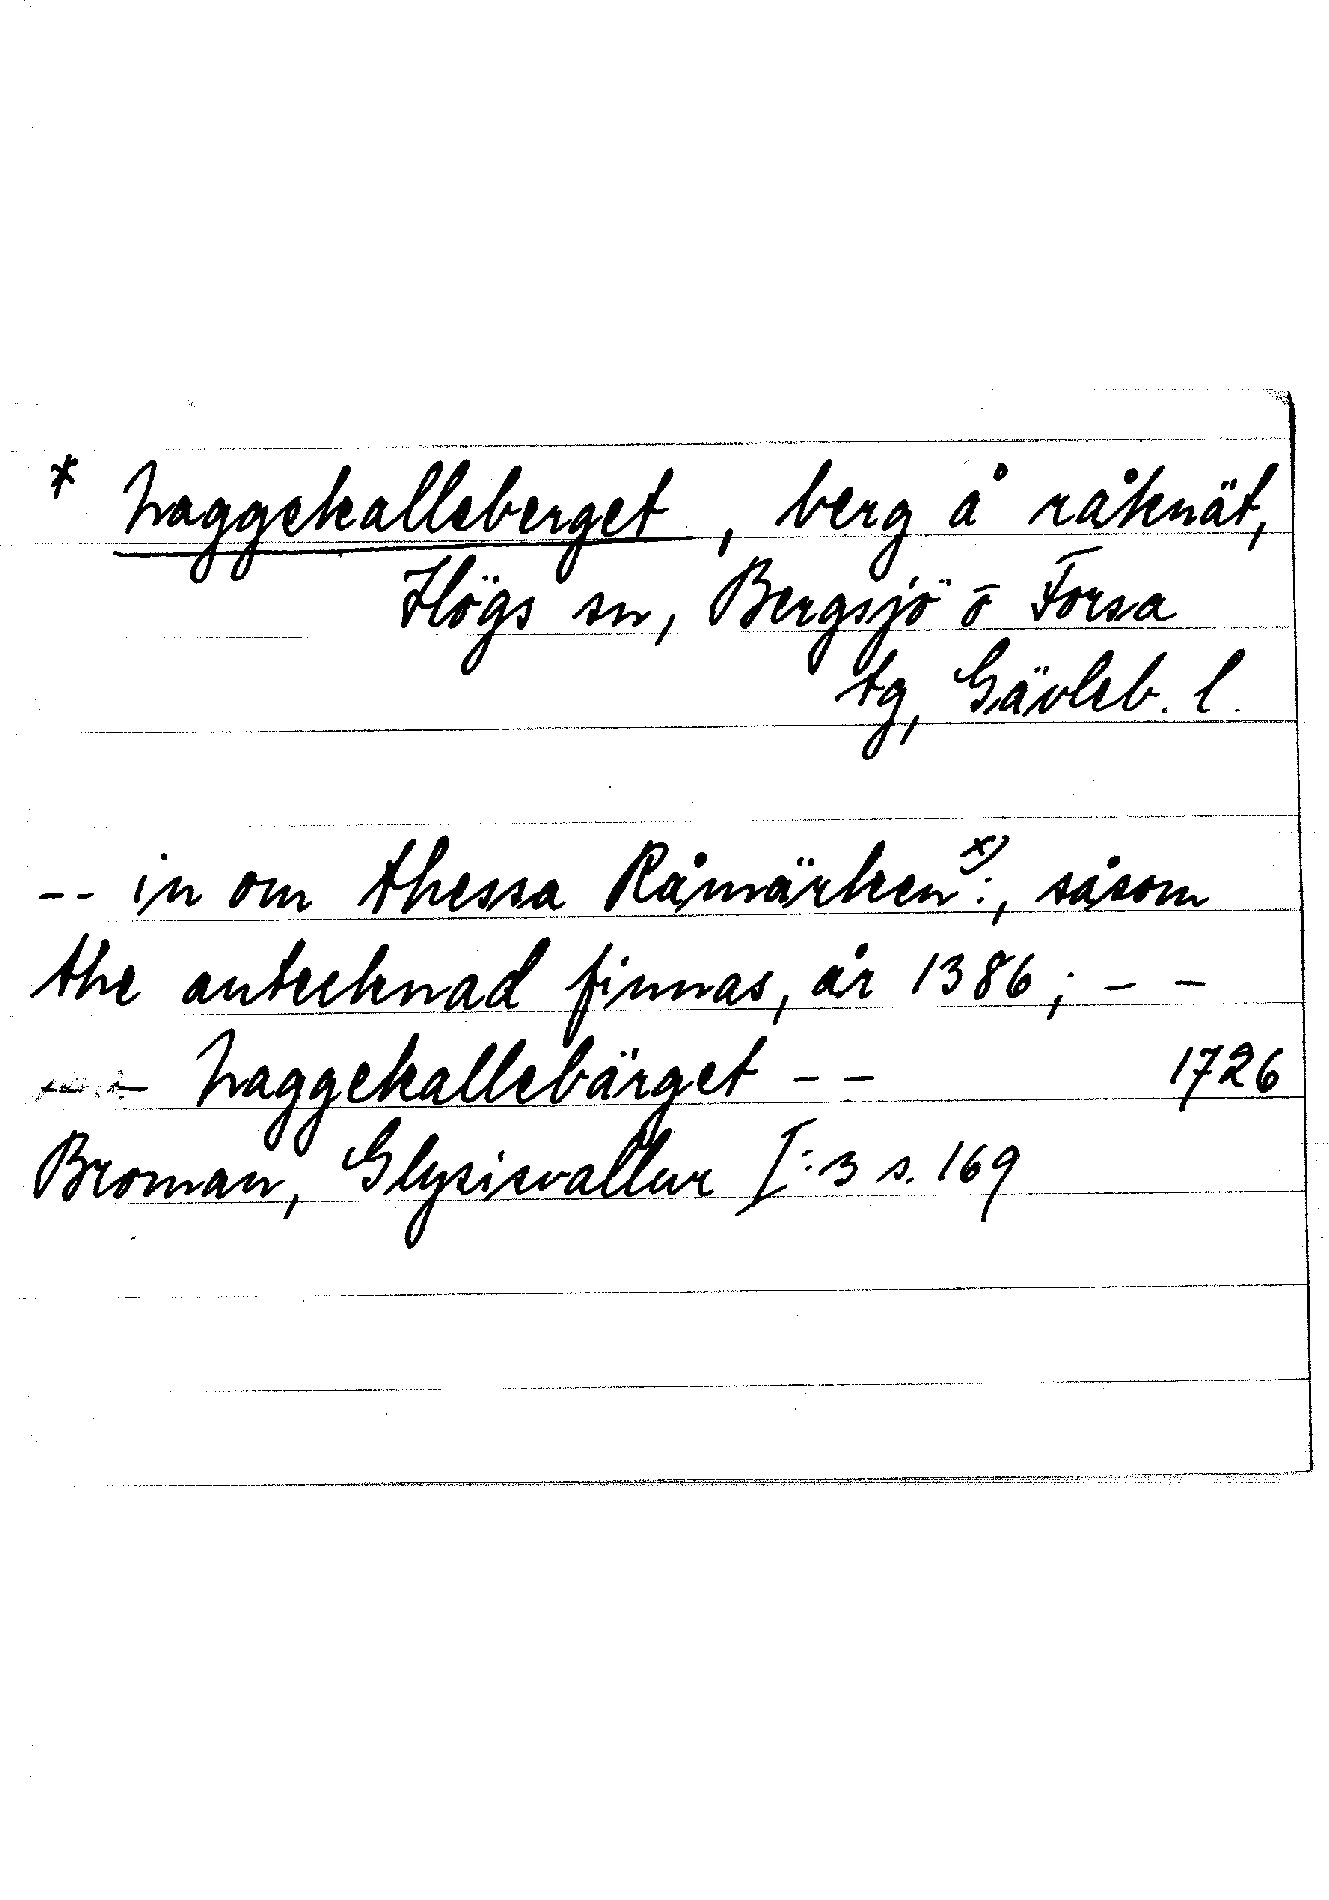 * Laggekalleberget, berg å råknät,
Högs sn, Bergsjö o Forsa
tg, Gävleb. l.
-- in om thessa Råmärken x):, såsom
the antecknad finnas, år 1386; --
-- Laggekallebärget -- 1726
Broman, Glysisvallur I:3 s. 169